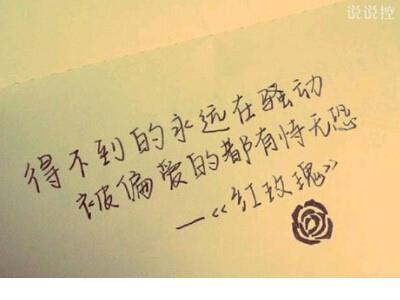 说说控
得不到的永远在骚动
被偏爱的都有恃无恐
—《红玫瑰》